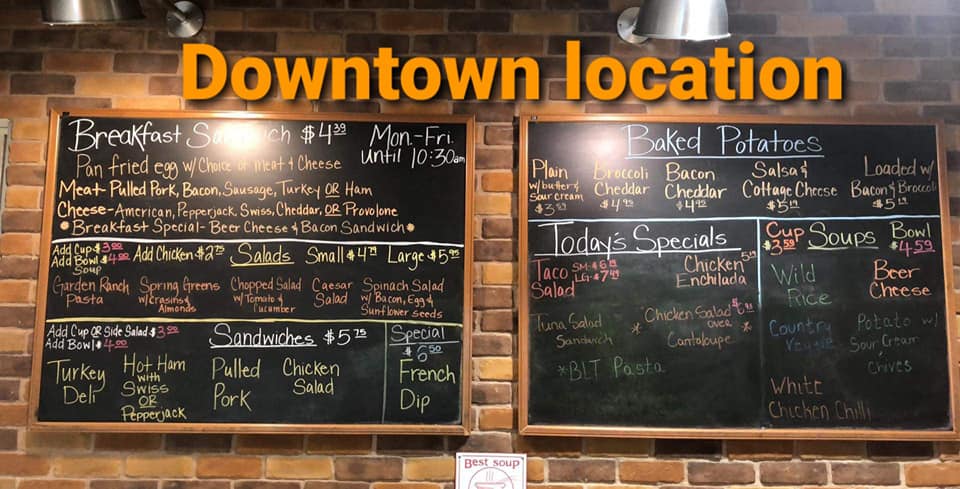 Downtown location
Breakfast Sandwich $4.39
Mon.-Fri.
until 10:30am
Pan fried egg w/ Choice of meat & Cheese
Meat-Pulled Pork, Bacon, Sausage, Turkey OR Ham
Cheese-American, Pepperjack, Swiss, Cheddar, OR Provolone
* Breakfast Special-Beer Cheese & Bacon Sandwich *
Add Cup $3.00
Add Bowl $4.00
Soup
Add Chicken $2.75
Salads
Small $4.79
Large $5.95
Garden Ranch
Pasta
Spring Greens
w/crasins &
Almonds
Chopped Salad
w/Tomato &
Cucumber
Caesar
Salad
Spinach Salad
w/ Bacon, Egg &
Sunflower seeds
Add Cup OR Side Salad $3.00
Add Bowl $4.00
Sandwiches $5.75
Turkey
Deli
Hot Ham
with
Swiss
OR
Pepperjack
Pulled
Pork
Chicken
Salad
Special
$6.50
French
Dip
Baked Potatoes
Plain
w/butter &
Sour cream
$3.59
Broccoli
Cheddar
$4.95
Bacon
Cheddar
$4.95
Salsa &
Cottage Cheese
$5.19
Loaded w/
Bacon & Broccoli
$5.19
Today's Specials
Taco
Salad
SM-$6.19
LG-$7.49
Chicken
Enchilada
Tuna Salad
Sandwich
* Chicken Salad
over *
Cantaloupe
*BLT Pasta
Cup
$3.59
Soups
Bowl
$4.59
Wild
Rice
Beer
Cheese
Country
Veggie
Potato w/
Sour Cream
& chives
White
Chicken Chili
Best soup